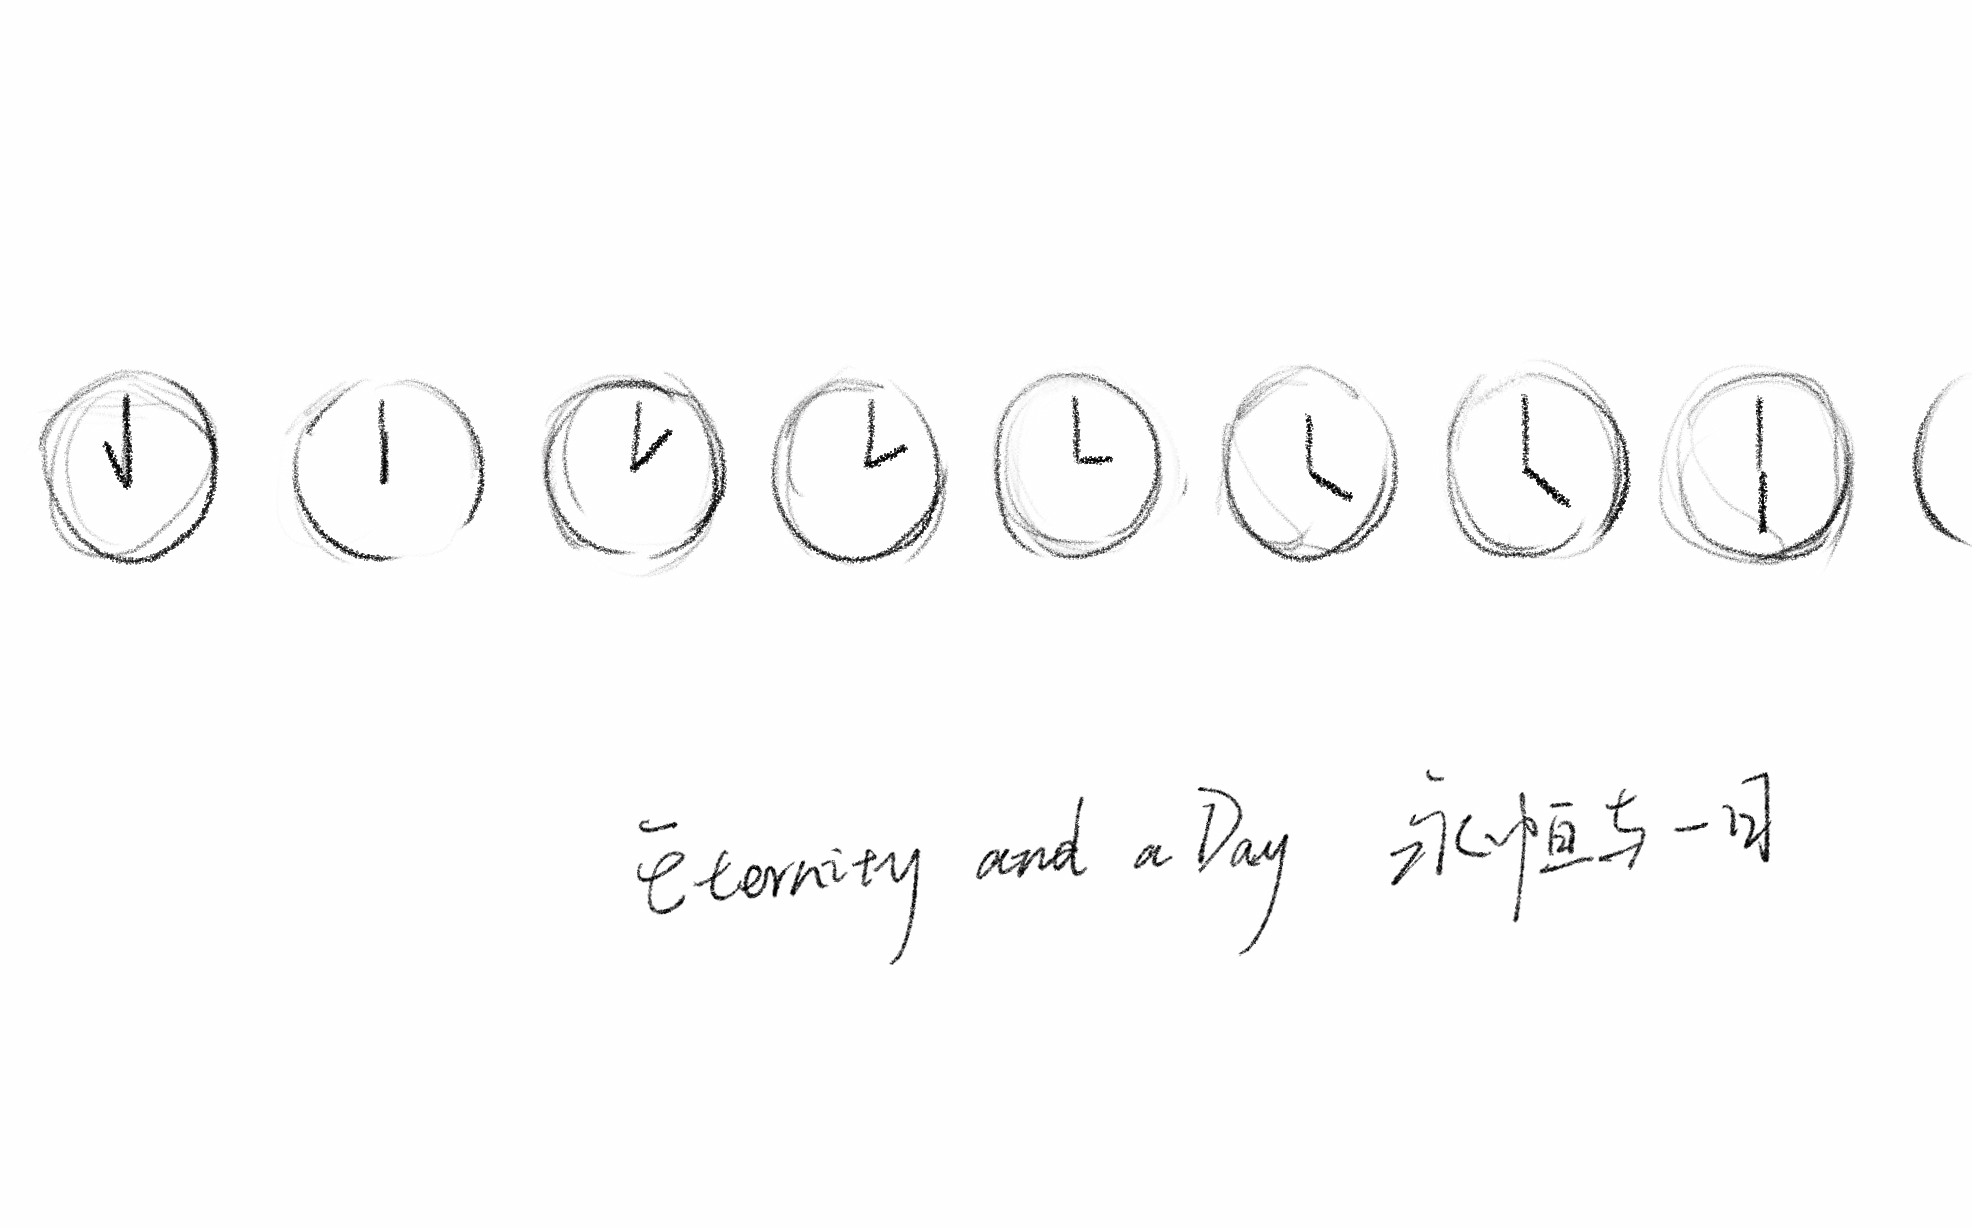 Eternity and a Day 永恒与一日